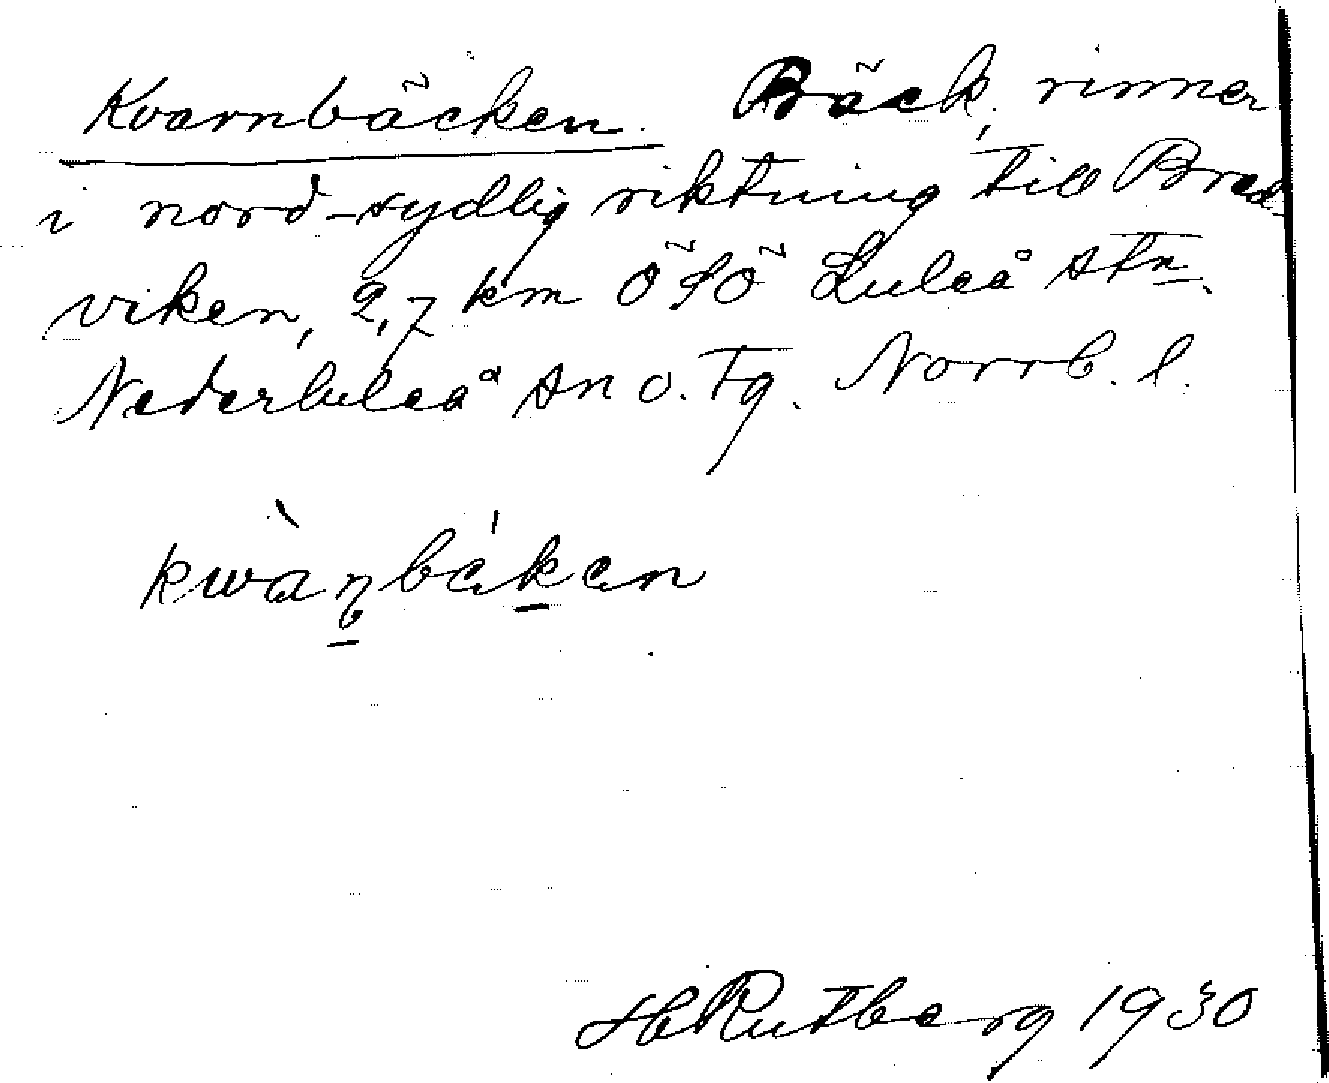 Kvarnbäcken. Bäck, rinner
i nord-sydlig riktning till Bred-
viken, 2,7 km ÖSÖ Luleå stn.
Nederluleå sn o. tg. Norrb. l.
kwàṇbákan
H Rutberg 1930